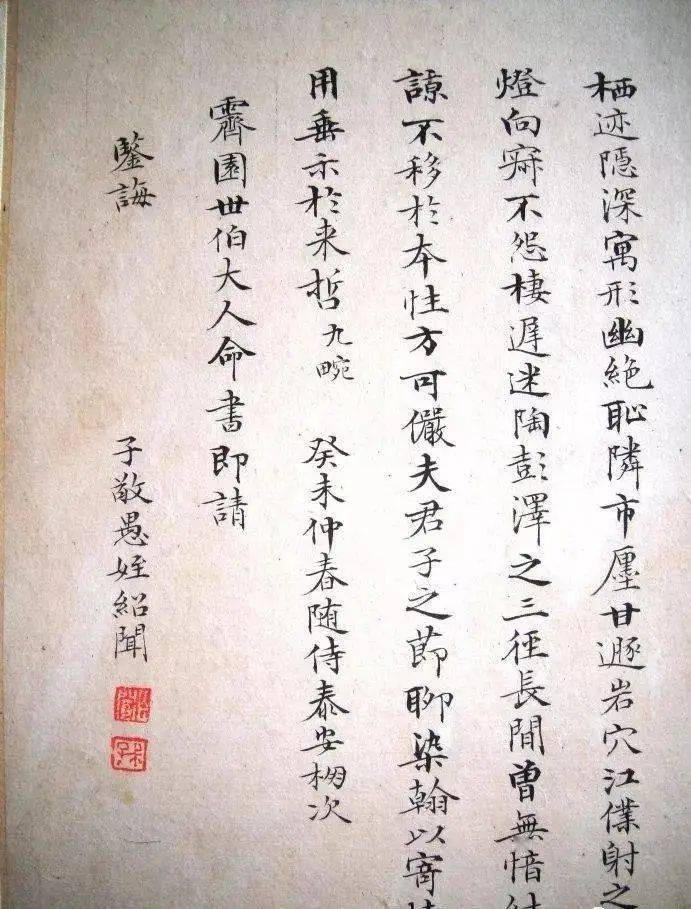 栖迹隱深寓形幽絶恥隣市廛甘遯岩穴江僕射之
燈向寂不怨棲遲迷陶彭澤之三徑長閒曾無愔
諒不移於本性方可儷夫君子之節聊染翰以寄
用垂示於来哲九畹 癸未仲春随侍泰安棚次
霽園世伯大人命書即請
鑒誨
子敬愚姪紹聞